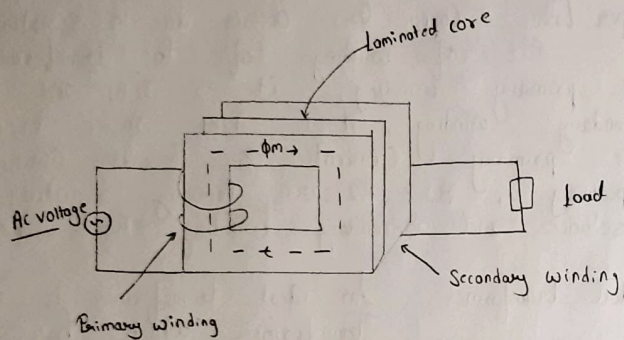 Laminated core
- - Φm → -
AC voltage
Load
Secondary winding
Primary winding